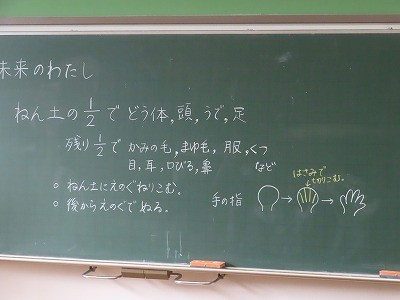 未来のわたし
ねん土の1/2で どう体,頭,うで,足
残り1/2で かみの毛,まゆ毛,服,くつ
目,耳,口びる,鼻 など
○ ねん土にえのぐねりこむ。
○ 後からえのぐでぬる。
はさみで
切りこむ。
手の指 → →